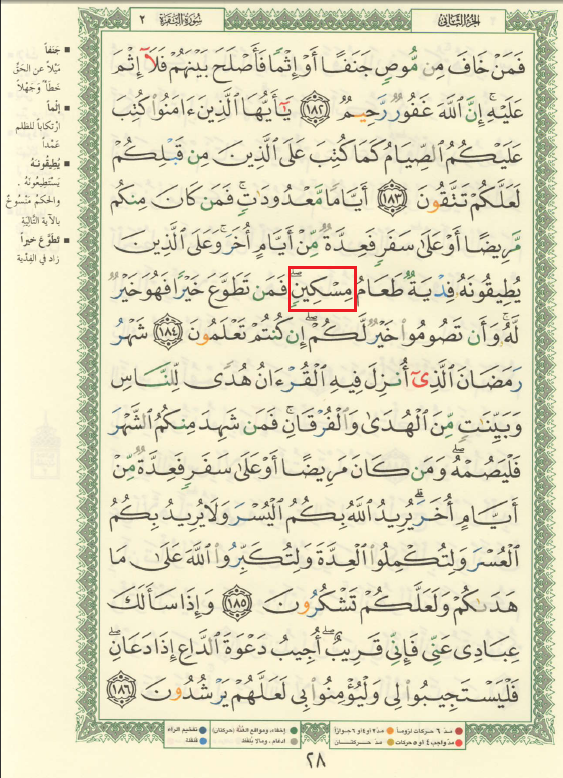 الجزء الثاني
سورة البقرة
٢
فَمَنْ خَافَ مِن مُّوصٍ جَنَفًا أَوْ إِثْمًا فَأَصْلَحَ بَيْنَهُمْ فَلَآ إِثْمَ
عَلَيْهِ ۚ إِنَّ ٱللَّهَ غَفُورٌ رَّحِيمٌ ﴿١٨٢﴾ يَٰٓأَيُّهَا ٱلَّذِينَ ءَامَنُوا۟ كُتِبَ
عَلَيْكُمُ ٱلصِّيَامُ كَمَا كُتِبَ عَلَى ٱلَّذِينَ مِن قَبْلِكُمْ
لَعَلَّكُمْ تَتَّقُونَ ﴿١٨٣﴾ أَيَّامًا مَّعْدُودَٰتٍ ۚ فَمَن كَانَ مِنكُم
مَّرِيضًا أَوْ عَلَىٰ سَفَرٍ فَعِدَّةٌ مِّنْ أَيَّامٍ أُخَرَ ۚ وَعَلَى ٱلَّذِينَ
يُطِيقُونَهُۥ فِدْيَةٌ طَعَامُ مِسْكِينٍ ۖ فَمَن تَطَوَّعَ خَيْرًا فَهُوَ خَيْرٌ
لَّهُۥ ۚ وَأَن تَصُومُوا۟ خَيْرٌ لَّكُمْ ۖ إِن كُنتُمْ تَعْلَمُونَ ﴿١٨٤﴾ شَهْرُ
رَمَضَانَ ٱلَّذِىٓ أُنزِلَ فِيهِ ٱلْقُرْءَانُ هُدًى لِّلنَّاسِ
وَبَيِّنَٰتٍ مِّنَ ٱلْهُدَىٰ وَٱلْفُرْقَانِ ۚ فَمَن شَهِدَ مِنكُمُ ٱلشَّهْرَ
فَلْيَصُمْهُ ۖ وَمَن كَانَ مَرِيضًا أَوْ عَلَىٰ سَفَرٍ فَعِدَّةٌ مِّنْ
أَيَّامٍ أُخَرَ ۗ يُرِيدُ ٱللَّهُ بِكُمُ ٱلْيُسْرَ وَلَا يُرِيدُ بِكُمُ
ٱلْعُسْرَ وَلِتُكْمِلُوا۟ ٱلْعِدَّةَ وَلِتُكَبِّرُوا۟ ٱللَّهَ عَلَىٰ مَا
هَدَىٰكُمْ وَلَعَلَّكُمْ تَشْكُرُونَ ﴿١٨٥﴾ وَإِذَا سَأَلَكَ
عِبَادِى عَنِّى فَإِنِّى قَرِيبٌ ۖ أُجِيبُ دَعْوَةَ ٱلدَّاعِ إِذَا دَعَانِ ۖ
فَلْيَسْتَجِيبُوا۟ لِى وَلْيُؤْمِنُوا۟ بِى لَعَلَّهُمْ يَرْشُدُونَ ﴿١٨٦﴾
■ جَنَفاً
مَيْلاً عن الحَقِّ
خطأً وَجَهْلاً
■ إثماً
ارْتكاباً للظلم
عَمْداً
■ يُطِيقُونَهُ
يَسْتَطِيعُونَهُ .
والحكمُ مَنْسُوخٌ
بالآية التَّاليَةِ
■ تَطَوَّعَ خيراً
زاد في الفِدْية
مدّ ٦ حركات لزوماً
مدّ ٢ أو ٤ أو ٦ جوازاً
إخفاء، ومواقع الغُنَّة (حركتان)
تفخيم الراء
مدّ واجب ٤ أو ٥ حركات
مدّ حركتان
إدغام ، ومالا يُلفَظ
قلقلة
٢٨